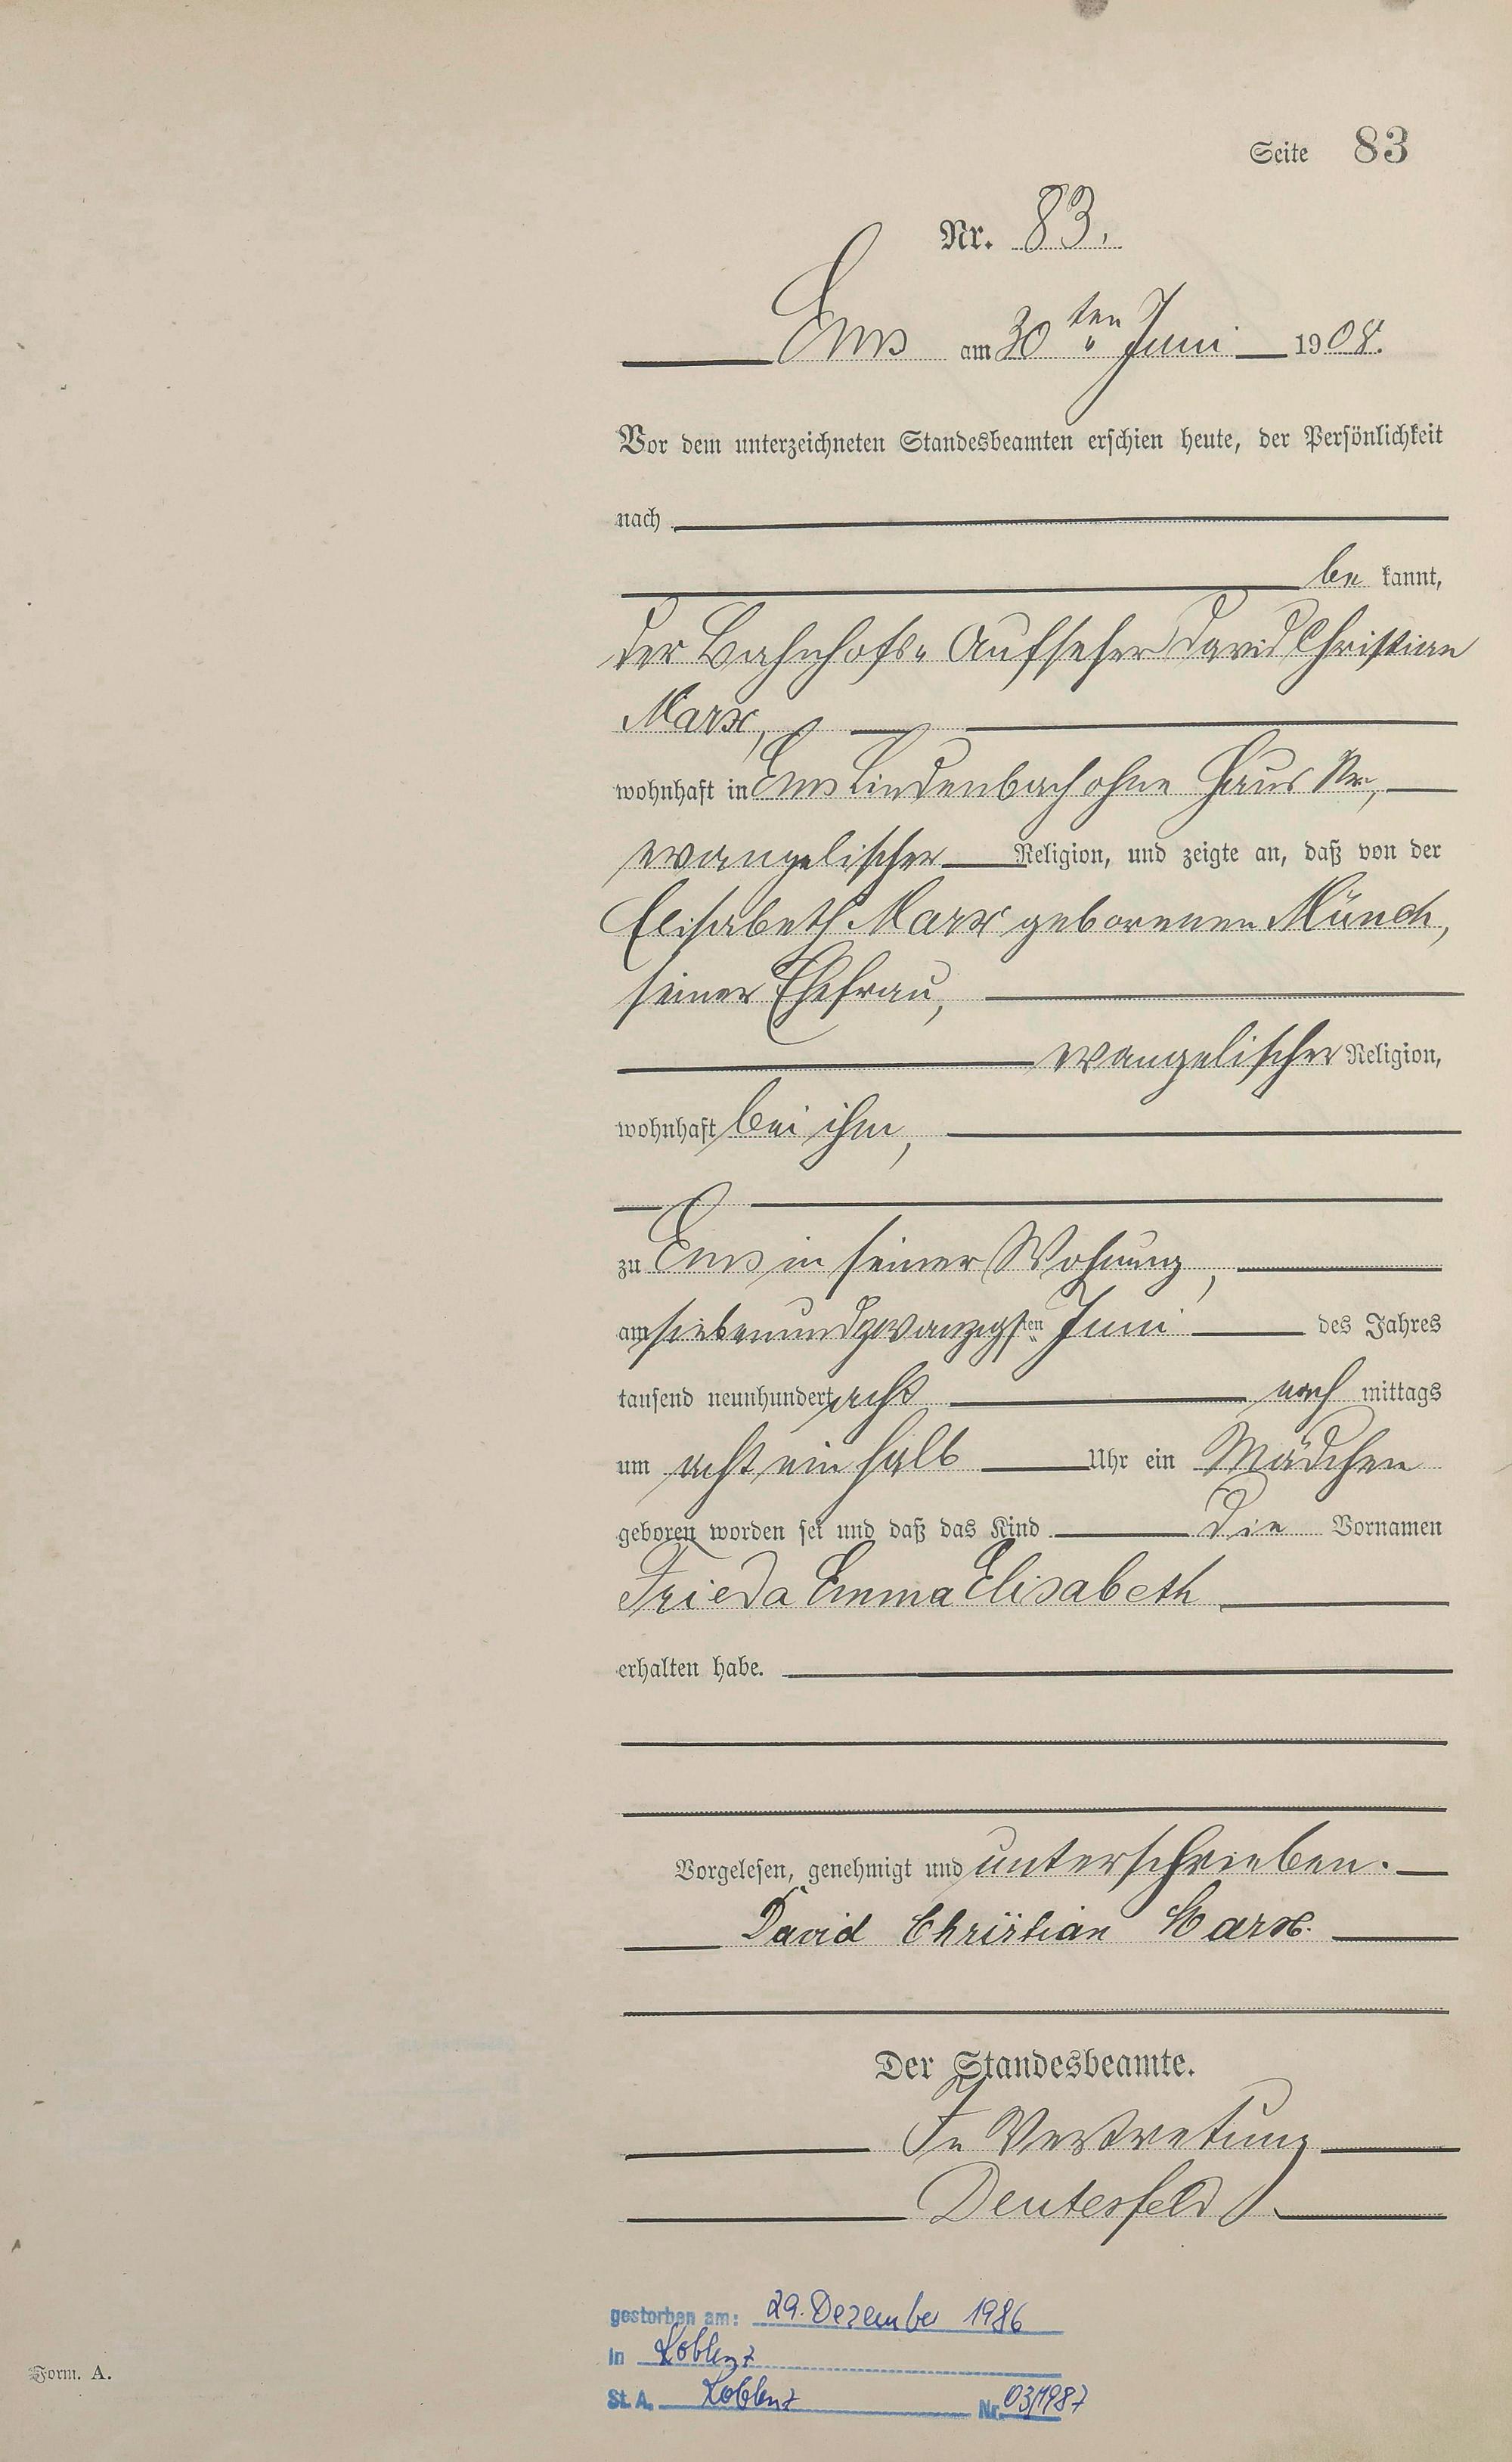 Seite 83
Nr. 83.
Ems am 30ten Juni 1908.
Vor dem unterzeichneten Standesbeamten erschien heute, der Persönlichkeit
nach
be kannt,
der Bahnhofs-Aufseher David Christian
Marx,
wohnhaft in Ems Lindenbach ohne Haus Nr.,
evangelischer Religion, und zeigte an, daß von der
Elisabeth Marx geborenen Münch,
seiner Ehefrau,
evangelischer Religion,
wohnhaft bei ihm,
zu Ems in seiner Wohnung,
am siebenundzwanzigsten Juni des Jahres
tausend neunhundert acht nach mittags
um acht ein halb Uhr ein Mädchen
geboren worden sei und daß das Kind die Vornamen
Frieda Emma Elisabeth
erhalten habe.
Vorgelesen, genehmigt und unterschrieben.
David Christian Marx.
Der Standesbeamte.
In Vertretung
Deutesfeld
gestorben am: 29. Dezember 1986
in Koblenz
St. A. Koblenz Nr. 03/1987
Form. A.